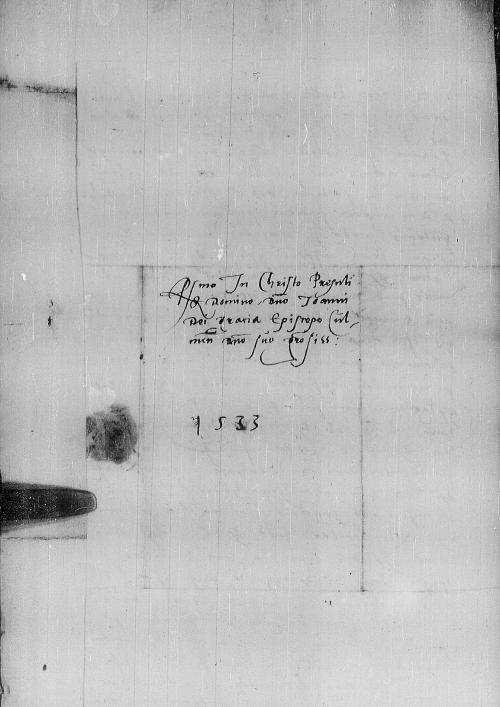 Rsmo In Christo Presuli
& Domino dno Ioanni
Dei Gracia Episcopo Cul-
men dno suo grosiss:
1533